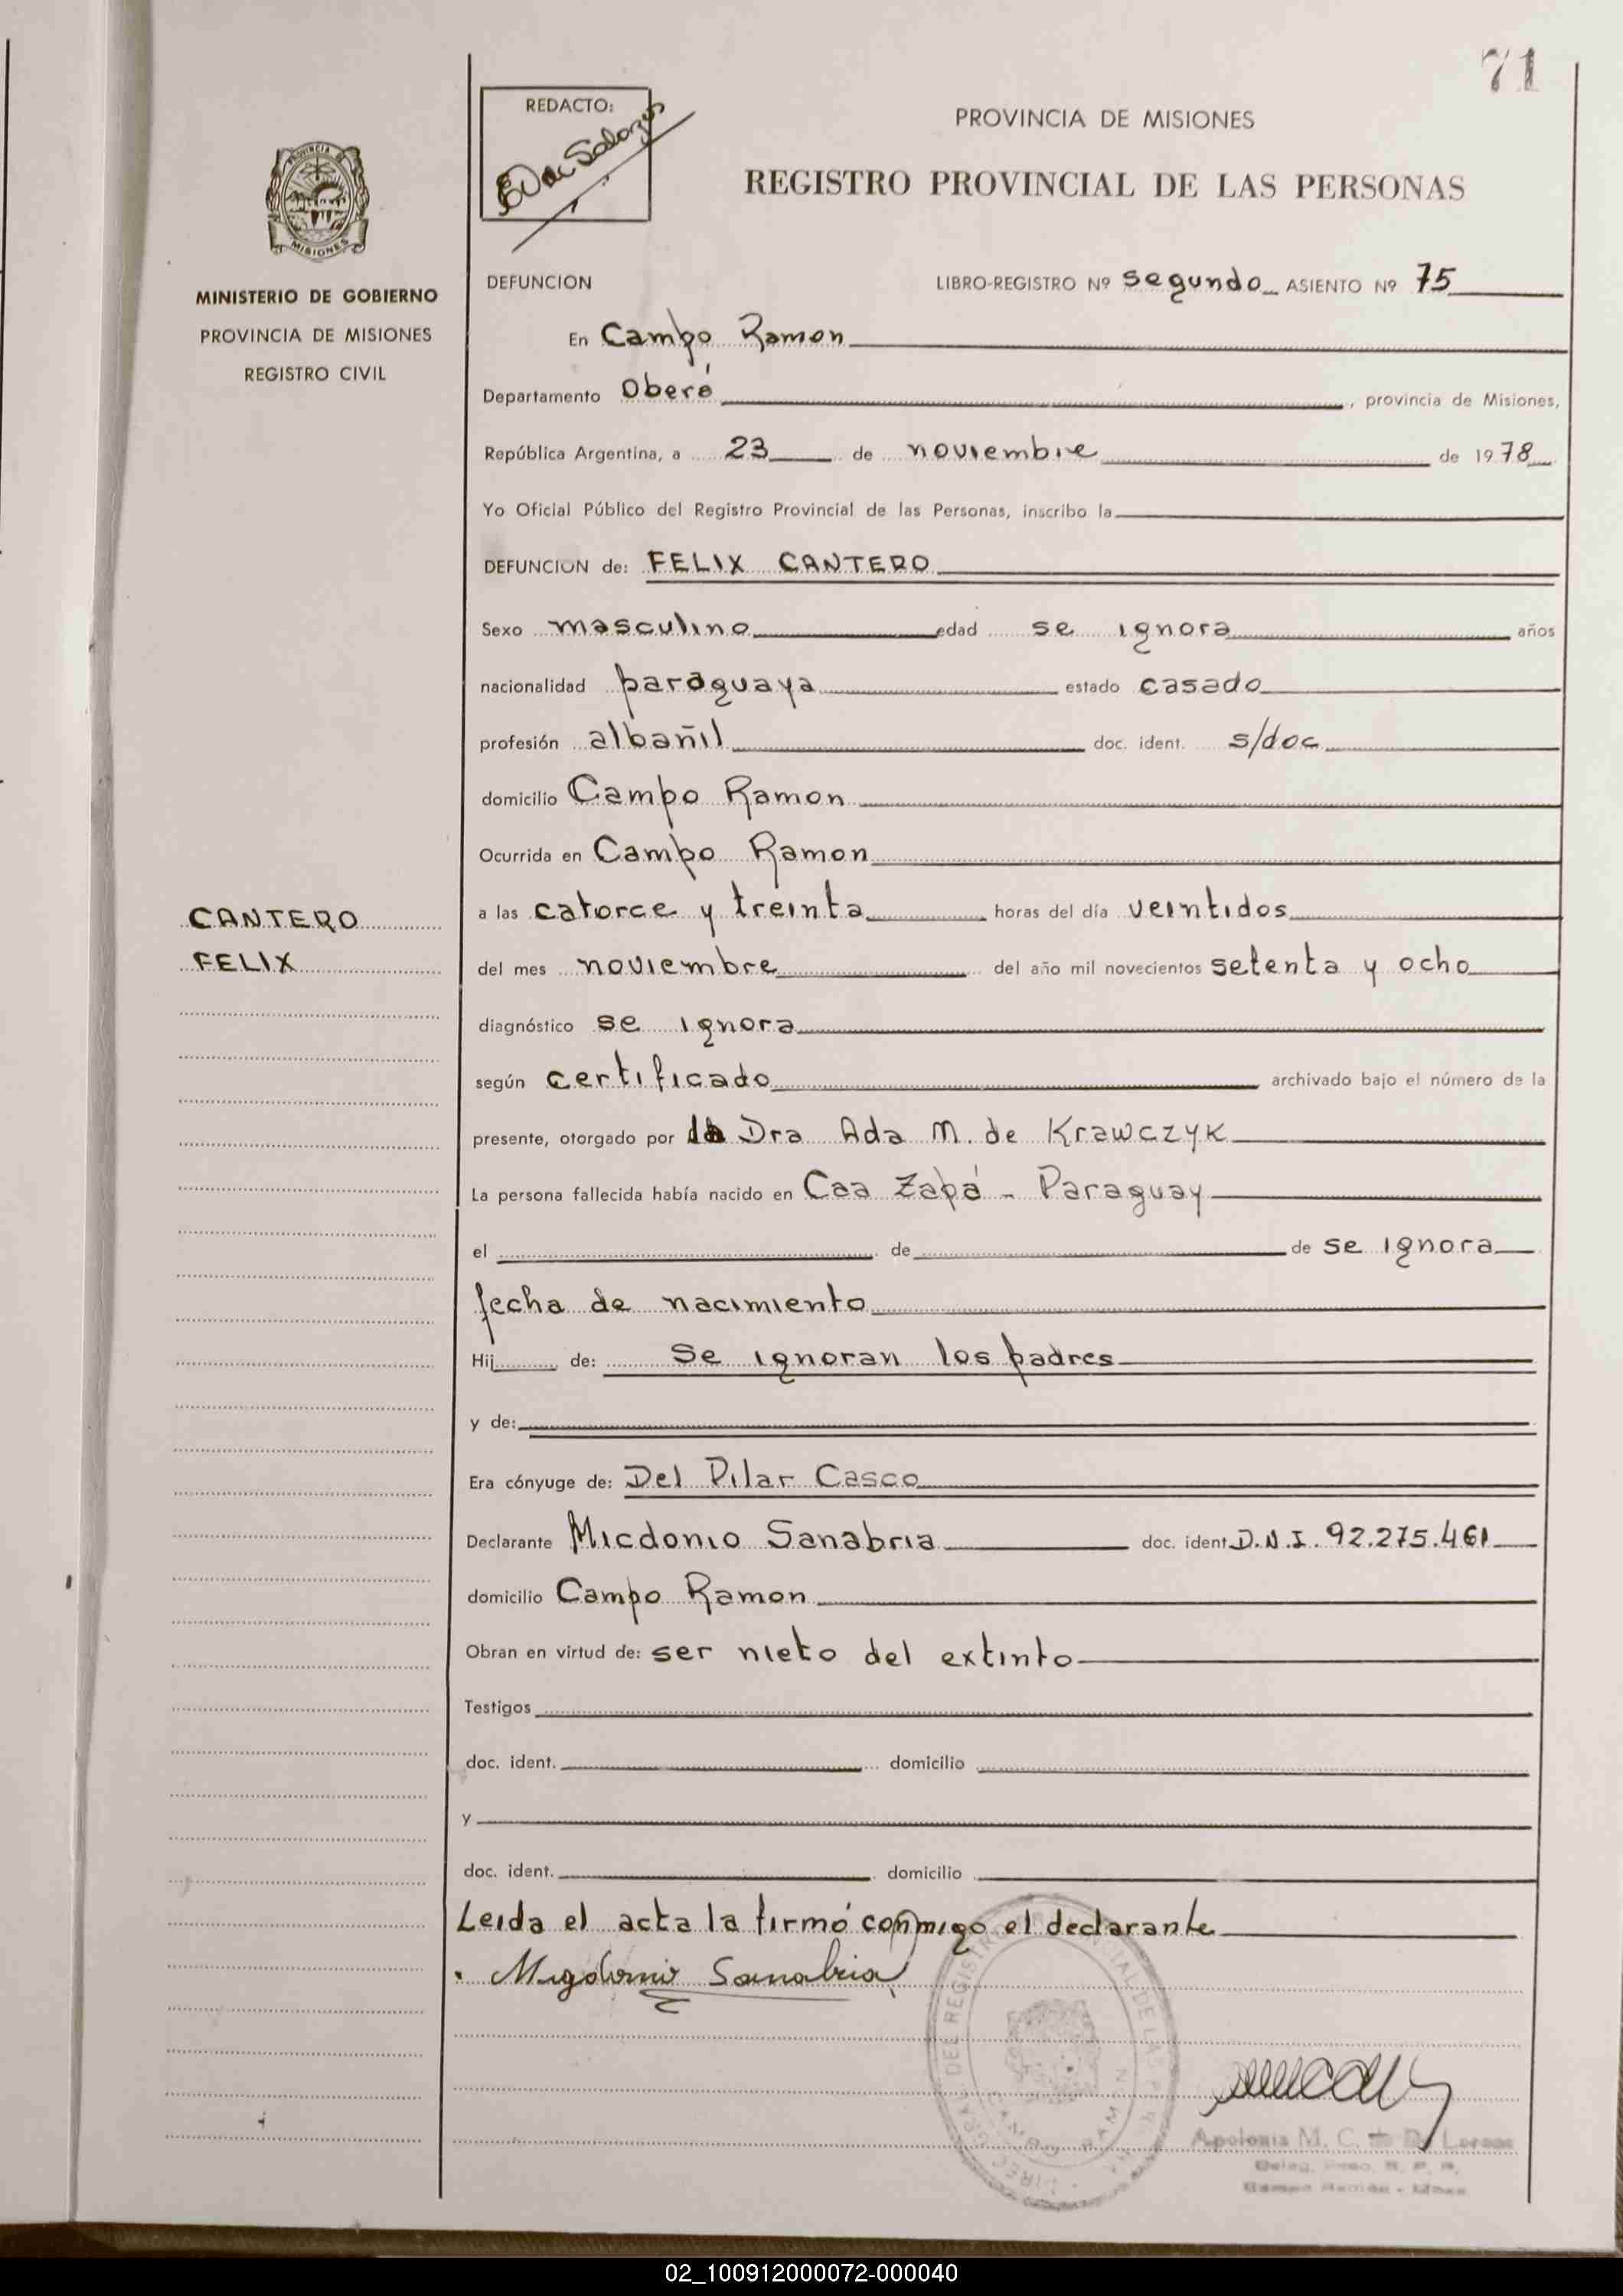 71
REDACTO:
PROVINCIA DE MISIONES
REGISTRO PROVINCIAL DE LAS PERSONAS
PROVINCIA DE
MISIONES
MINISTERIO DE GOBIERNO
PROVINCIA DE MISIONES
REGISTRO CIVIL
DEFUNCION LIBRO-REGISTRO Nº segundo ASIENTO Nº 75
En Campo Ramon
Departamento Oberá, provincia de Misiones,
República Argentina, a 23 de noviembre de 1978
Yo Oficial Público del Registro Provincial de las Personas, inscribo la
DEFUNCION de: FELIX CANTERO
Sexo masculino edad se ignora años
nacionalidad paraguaya estado casado
profesión albañil doc. ident. s/doc
domicilio Campo Ramon
Ocurrida en Campo Ramon
CANTERO
FELIX
a las catorce y treinta horas del día veintidos
del mes noviembre del año mil novecientos setenta y ocho
diagnóstico se ignora
según certificado archivado bajo el número de la
presente, otorgado por la Dra Ada M. de Krawczyk
La persona fallecida había nacido en Caa Zapá - Paraguay
el de de se ignora
fecha de nacimiento
Hij de: Se ignoran los padres
y de:
Era cónyuge de: Del Pilar Casco
Declarante Micdonio Sanabria doc. ident. D.N.I. 92.275.461
domicilio Campo Ramon
Obran en virtud de: ser nieto del extinto
Testigos
doc. ident. domicilio
y
doc. ident. domicilio
Leida el acta la firmó conmigo el declarante
Migdonio Sanabria
Apolonia M. C. de
02_100912000072-000040